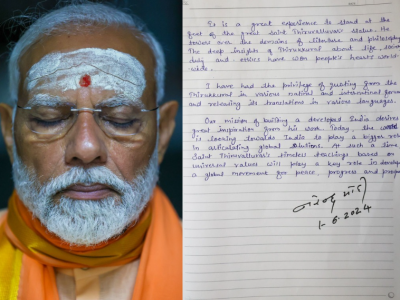 It is a great experience to stand at the
feet of the great Saint Thiruvalluvar statue. He
towers over the domains of literature and philosophy.
The deep insights of Thirukkural about life, society,
duty and ethics have won people's hearts world-
wide.
I have had the privilege of quoting from the
Thirukkural in various national and international forums
and releasing its translations in various languages.
Our mission of building a developed India, desires
great inspiration from his work. Today, the world
is looking towards India to play a bigger role
in articulating global solutions. At such a time
Saint Thiruvalluvar's timeless teachings based on
universal values will play a key role in developing
a global movement for peace, progress and prosperity
1-6-2024